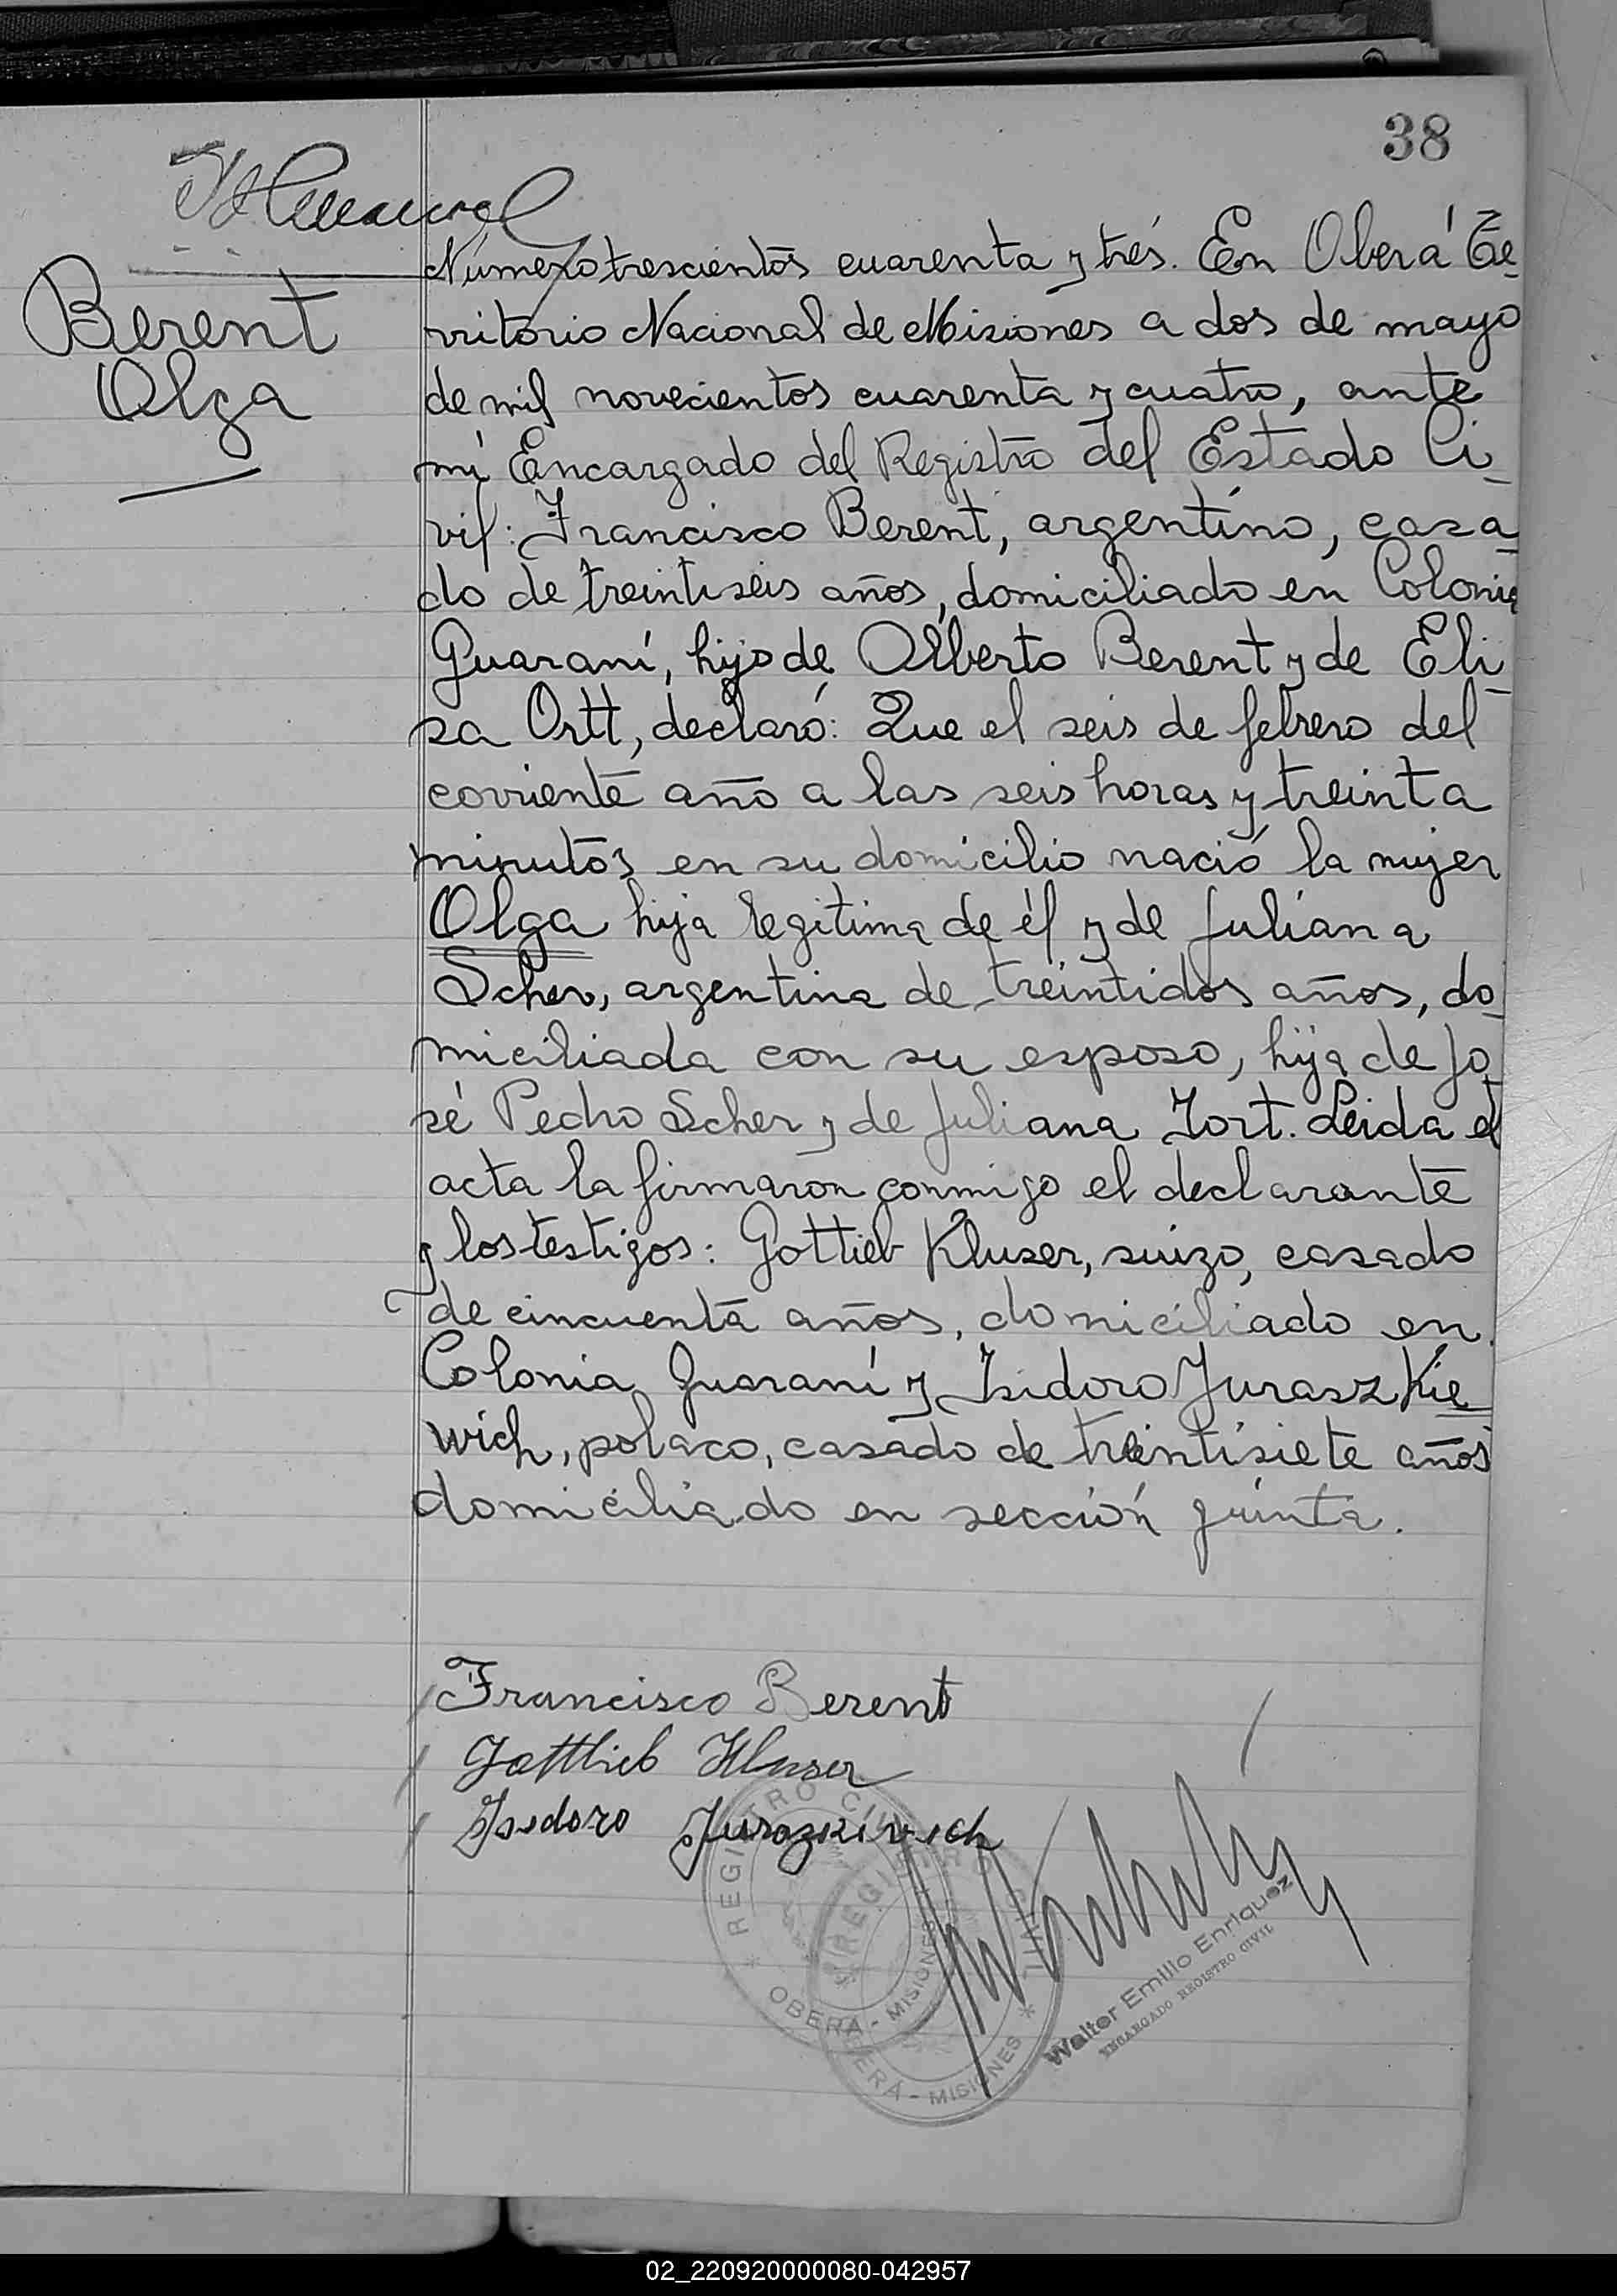 38
Berent
Olga
Número trescientos cuarenta y trés. En Oberá Te-
rritorio Nacional de Misiones a dos de mayo
de mil novecientos cuarenta y cuatro, ante
mí Encargado del Registro del Estado Ci-
vil: Francisco Berent, argentino, casa-
do de treintiseis años, domiciliado en Colonia
Guaraní, hijo de Alberto Berent y de Eli-
sa Ortt, declaró: Que el seis de febrero del
corriente año a las seis horas y treinta
minutos en su domicilio nació la mujer
Olga hija legitima de él y de Juliana
Scher, argentina de treintidos años, do-
miciliada con su esposo, hija de Jo-
sé Pedro Scher y de Juliana Tort. Leida el
acta la firmaron conmigo el declarante
y los testigos: Gottieb Kluser, suizo, casado
de cincuenta años, domiciliado en
Colonia Guaraní y Isidoro Juraszkie-
wich, polaco, casado de treintisiete años
domiciliado en sección quinta.
Francisco Berent
Gottlieb Kluser
Isidoro Juraszkivich
REGISTRO CIVIL
OBERÁ - MISIONES
REGISTRO CIVIL
OBERÁ - MISIONES
Walter Emilio Enriquez
ENCARGADO REGISTRO CIVIL
02_220920000080-042957